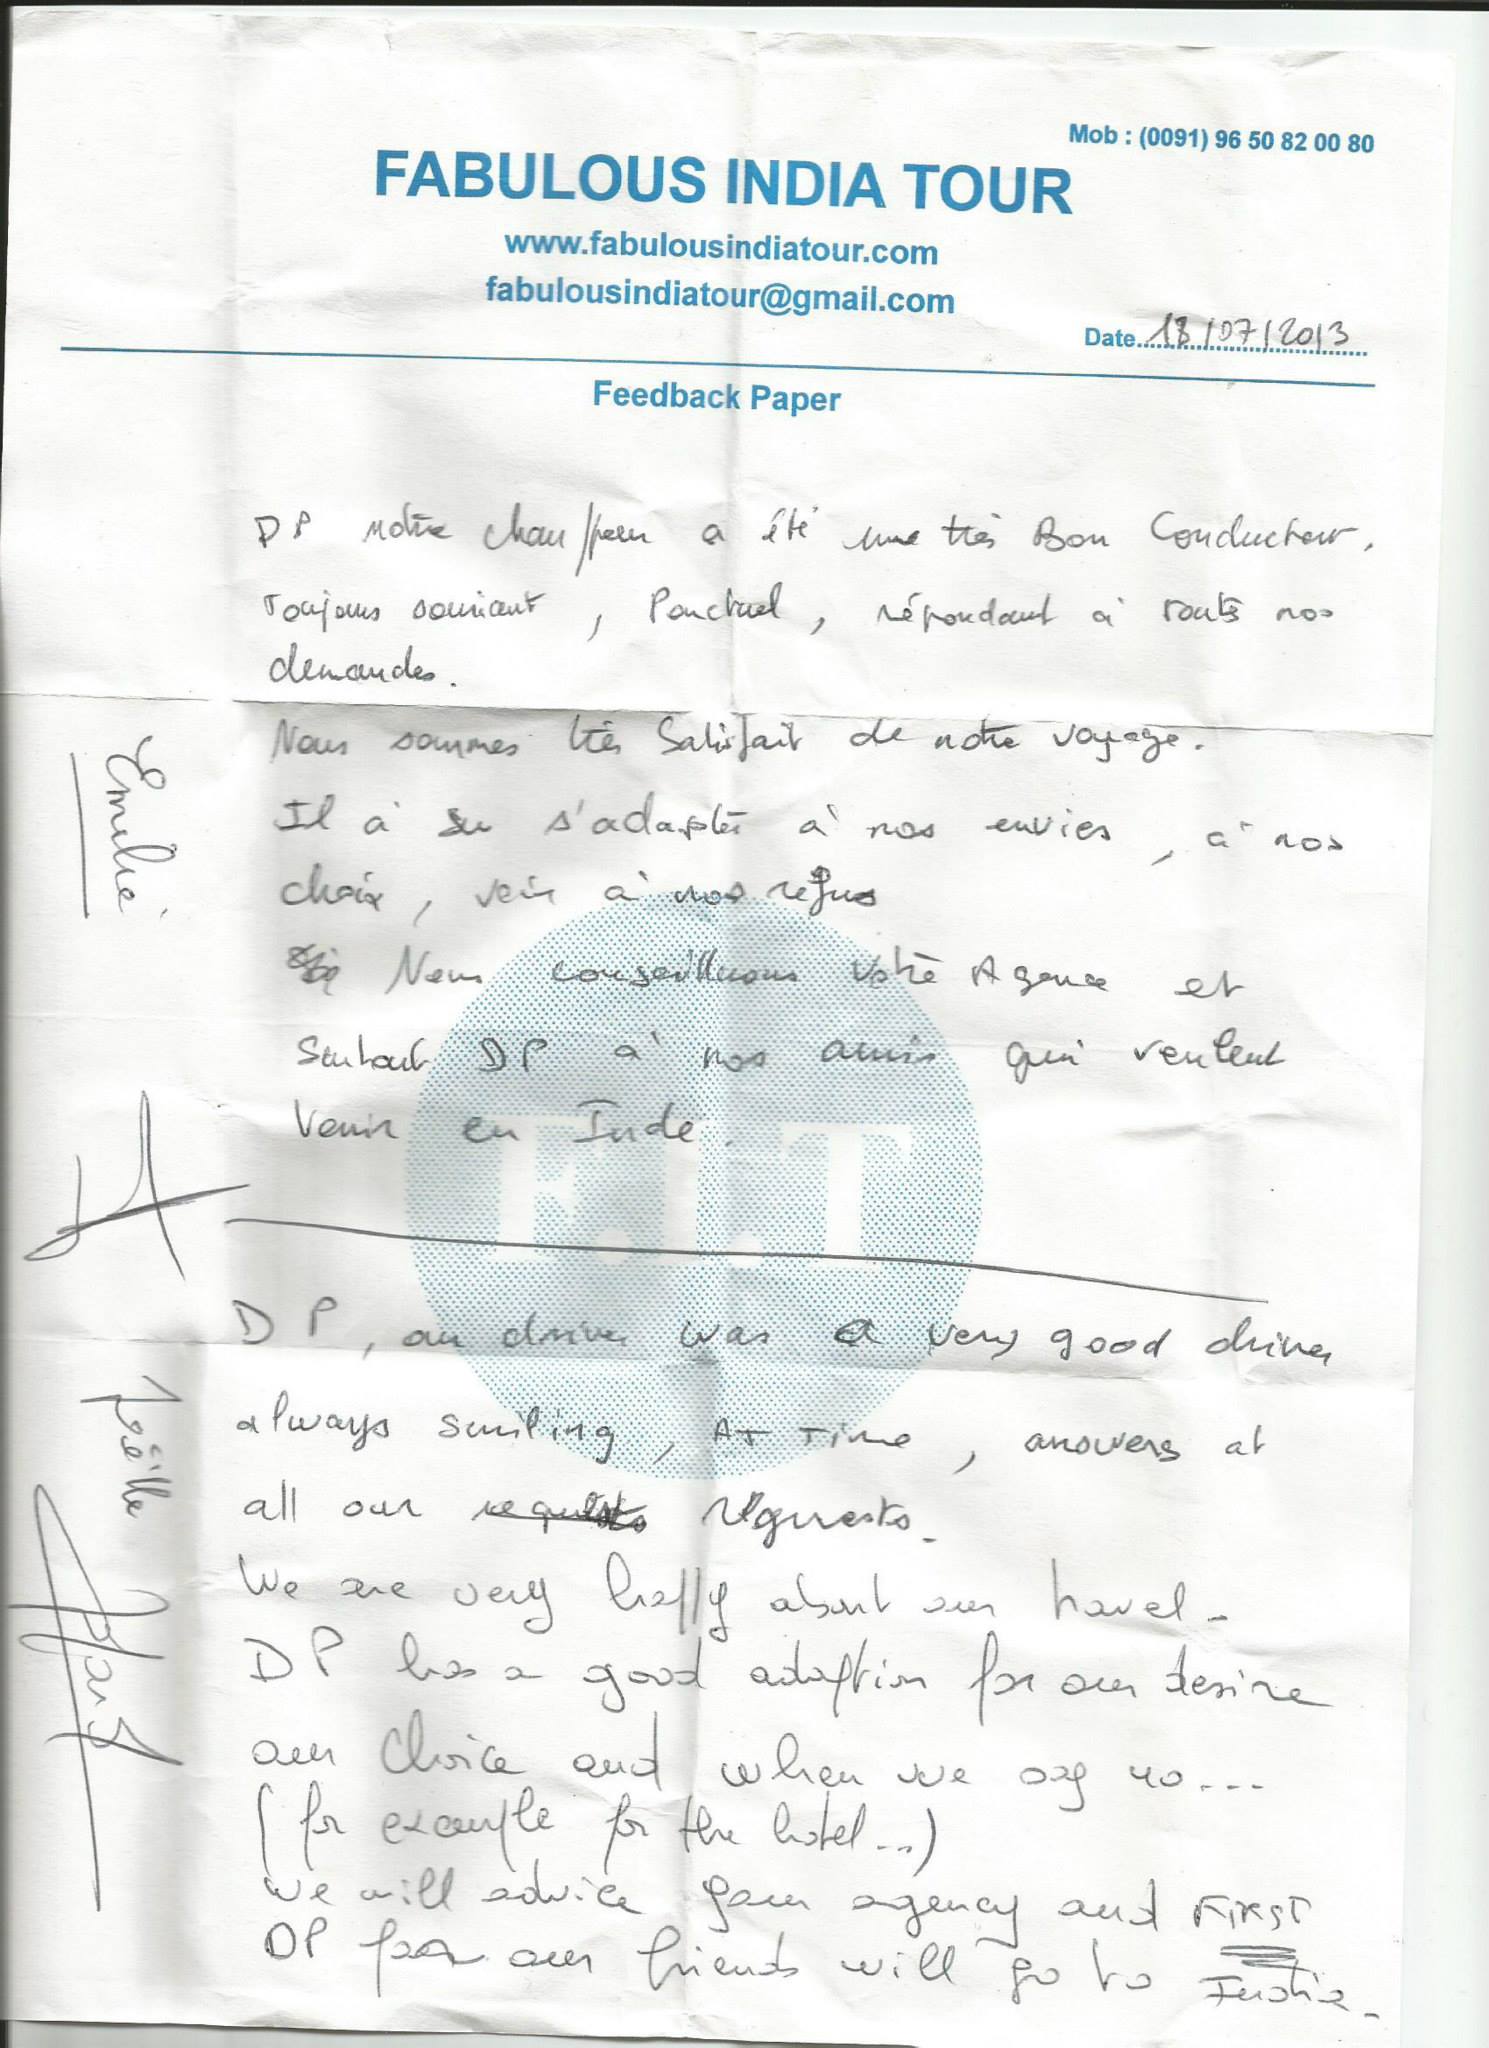 Mob : (0091) 96 50 82 00 80
FABULOUS INDIA TOUR
www.fabulousindiatour.com
fabulousindiatour@gmail.com
Date 18/07/2013
Feedback Paper
DP notre chauffeur a été une très Bon Conducteur.
Toujours souriant, Ponctuel, répondant à toute nos
demandes.
Nous sommes très Satisfait de notre voyage.
Il à su s'adapter à nos envies, à nos
choix, voir à nos refus
Nous conseillerons Votre Agence et
Surtout DP à nos amis qui veulent
Venir en Inde.
Emilie
F.I.T
DP, our driver was a very good driver
always smiling, AT Time, answers at
all our requests requests.
We are very happy about our travel.
DP has a good adaption for our desire
our choice and when we say no...
(for example for the hotel...)
We will advice your agency and FIRST
DP for our friends will go to India.
Noëlle